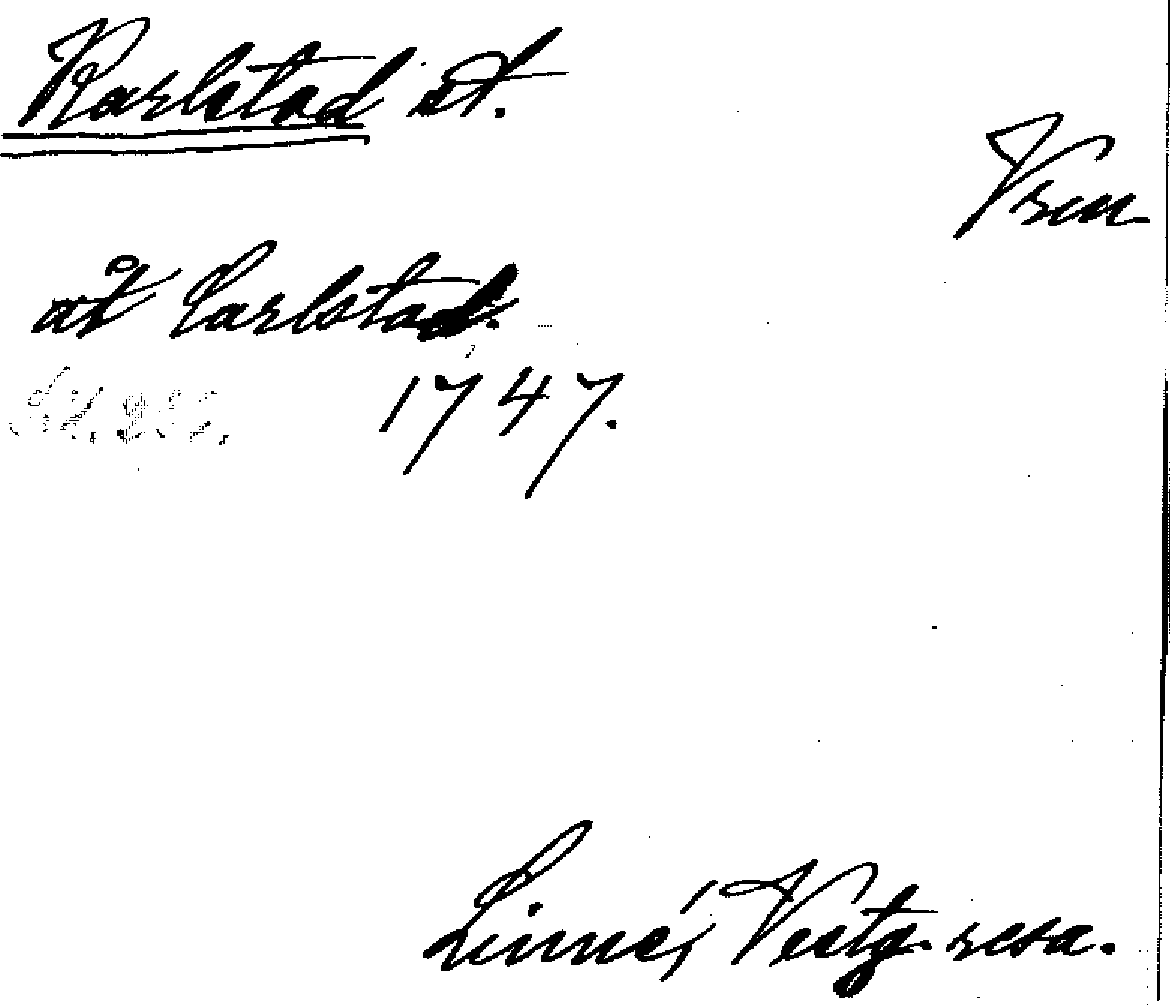 Karlstad st.
Vrm
åt Carlstad.
1747.
Linné, Vestg. resa.